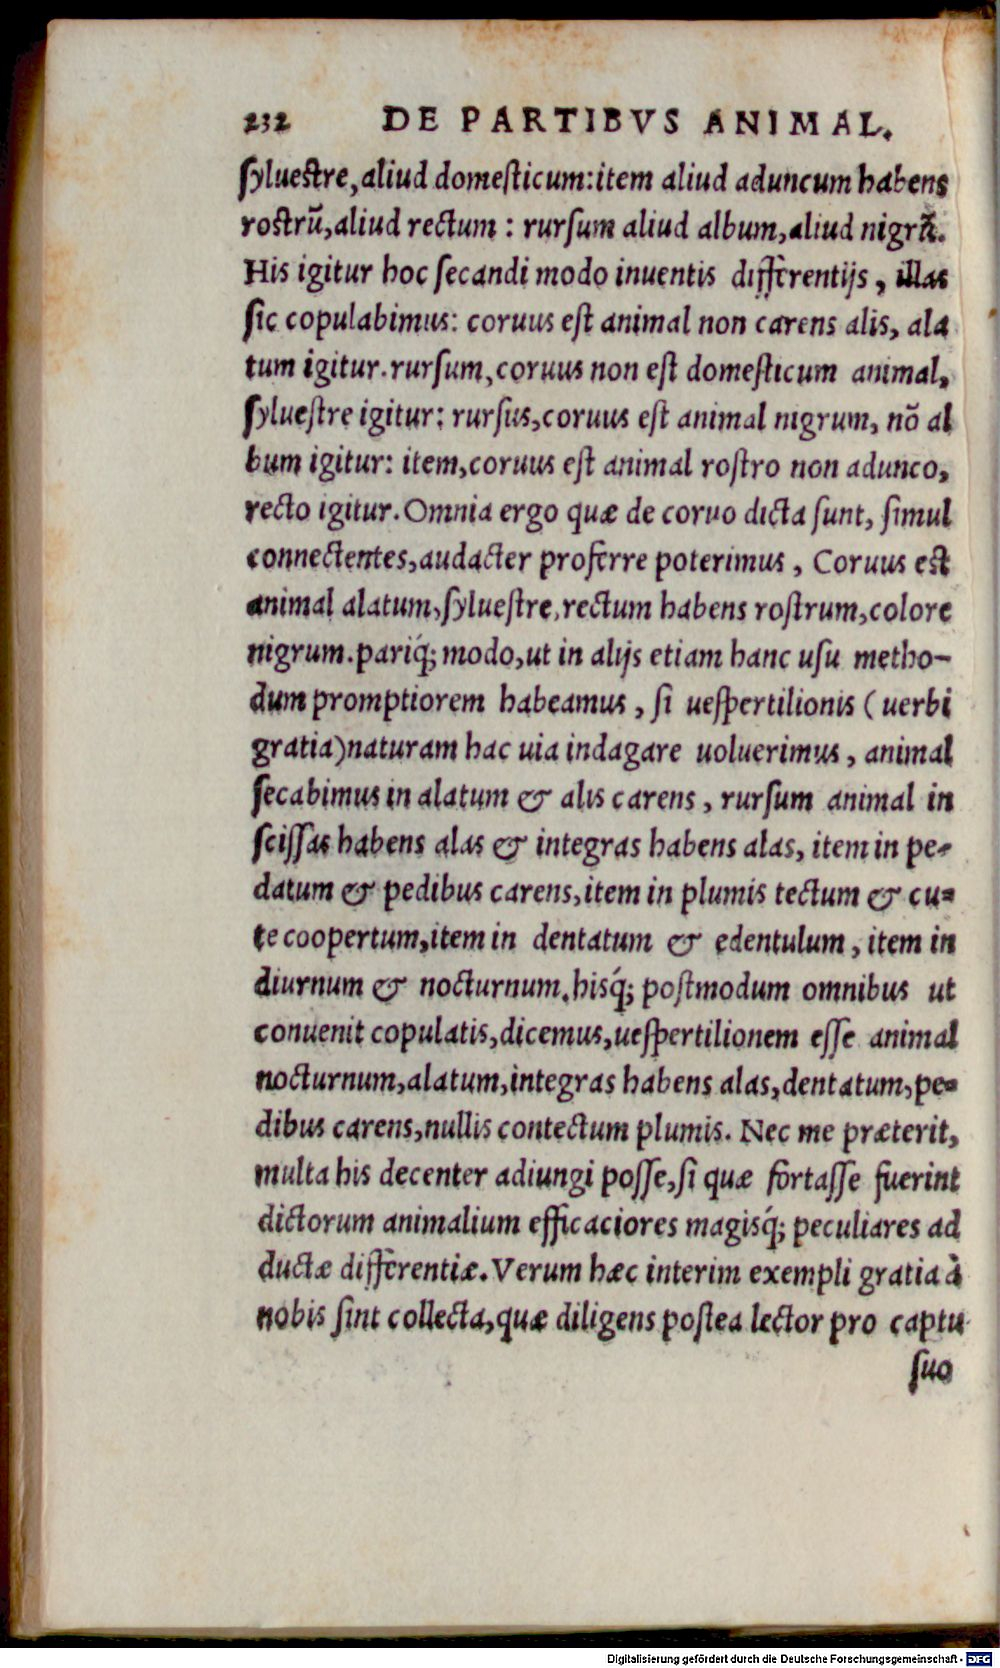 232 DE PARTIBVS ANIMAL.
ſylueſtre, aliud domeſticum: item aliud aduncum habens
roſtrũ, aliud rectum : rurſum aliud album, aliud nigrũ.
His igitur hoc ſecandi modo inuentis differentijs , illas
ſic copulabimus: coruus eſt animal non carens alis, ala
tum igitur. rurſum, coruus non eſt domeſticum animal,
ſylueſtre igitur: rurſus, coruus eſt animal nigrum, nõ al
bum igitur: item, coruus eſt animal roſtro non adunco,
recto igitur. Omnia ergo quæ de coruo dicta ſunt, ſimul
connectentes, audacter proferre poterimus , Coruus eſt
animal alatum, ſylueſtre, rectum habens roſtrum, colore
nigrum. pariq́; modo, ut in alijs etiam hanc uſu metho-
dum promptiorem habeamus , ſi ueſpertilionis ( uerbi
gratia) naturam hac uia indagare uoluerimus , animal
ſecabimus in alatum & alis carens , rurſum animal in
ſciſſas habens alas & integras habens alas, item in pe-
datum & pedibus carens, item in plumis tectum & cu-
te coopertum, item in dentatum & edentulum , item in
diurnum & nocturnum. hisq́; poſtmodum omnibus ut
conuenit copulatis, dicemus, ueſpertilionem eſſe animal
nocturnum, alatum, integras habens alas, dentatum, pe-
dibus carens, nullis contectum plumis. Nec me præterit,
multa his decenter adiungi poſſe, ſi quæ fortaſſe fuerint
dictorum animalium efficaciores magisq́; peculiares ad
ductæ differentiæ. Verum hæc interim exempli gratia à
nobis ſint collecta, quæ diligens poſtea lector pro captu
ſuo
Digitalisierung gefördert durch die Deutsche Forschungsgemeinschaft - DFG